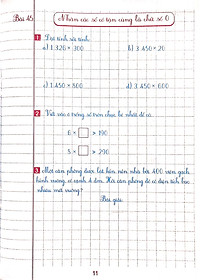 Bài 45
Nhân các số có tận cùng là chữ số 0
1 Đặt tính rồi tính
a) 1 326 × 300
b) 3 450 × 20
c) 1 450 × 800
d) 3 450 × 600
2 Viết vào ô trống số tròn chục bé nhất để có
6 × □ > 190
5 × □ > 290
3 Một căn phòng được lát kín nền nhà bởi 400 viên gạch
hình vuông có cạnh 3 dm. Hỏi căn phòng đó có diện tích bao
nhiêu mét vuông?
Bài giải
11